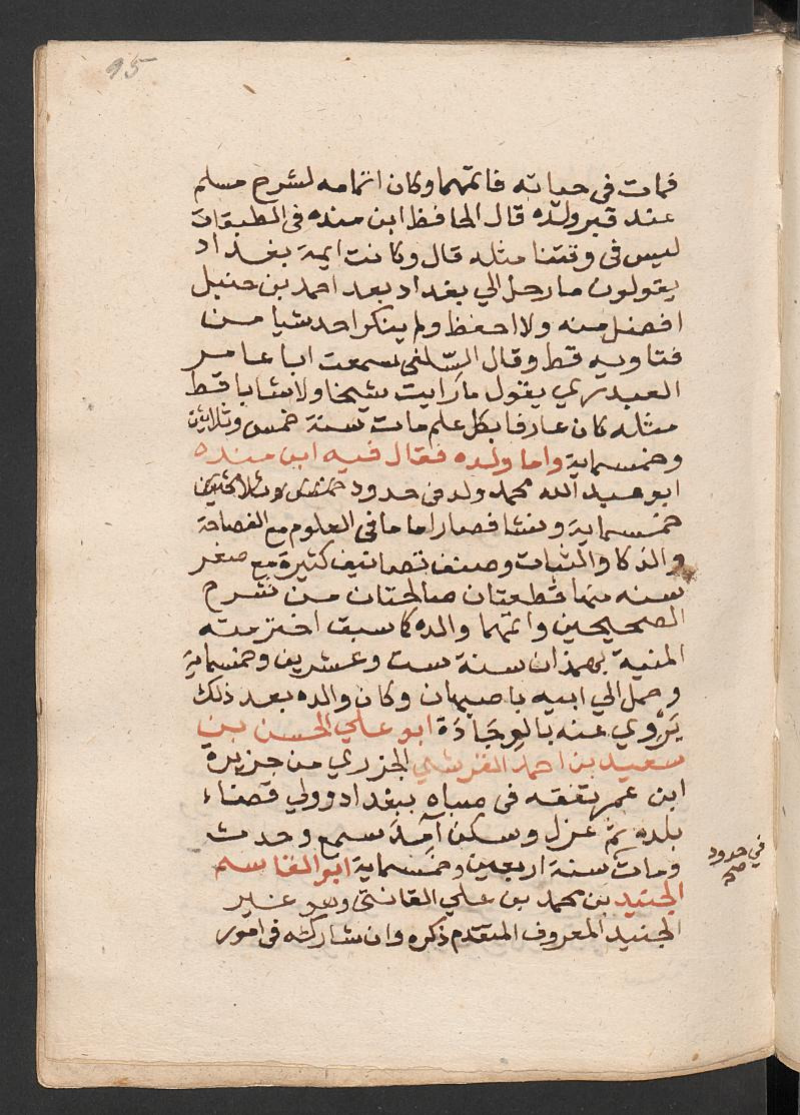 95
فمات فى حياته فاتمهما وكان اتمامه لشرح مسلم
عند قبر ولده قال الحافظ ابن منده فى الطبقات
ليس فى وقتنا مثله قال وكانت ايمة بغداد
يقولون ما رحل الي بغداد بعد احمد بن حنبل
افضل منه ولا احفظ ولم ينكر احد شيا من
فتاويه قط وقال السّلفى سمعت ابا عامر
العبدري يقول ما رايت شيخا ولا شابا قط
مثله كان عارفا بكل علم مات سنة خمس وثلاثين
وخمسماية واما ولده فقال فيه ابن منده
ابو عبد الله محمد ولد فى حدود
خمسماية ونشا فصار اماما فى العلوم مع الفصاحة
والذكا والثبات وصنف تصانيف كثيرة مع صغر
سنه منها قطعتان صالحتان من شرح
الصحيحين واتمهما والده كما سبق اخترمته
المنية بهمذان سنة ست وعشرين وخمسماية
وحمل الي ابيه باصبهان وكان والده بعد ذلك
يَرْوي عنه بالوِجَادَة ابو علي الحسن بن
سعيد بن احمد القرشي الجزري من جزيرة
ابن عمر تفقه فى صباه ببغداد وولي قضاء
بلده ثم عزل وسكن آمِدَ سمع وحدث
ومات سنة اربعين وخمسماية ابو القاسم
الجنيد بن محمد بن علي القائنى وهو غير
الجنيد المعروف المتقدم ذكره وان شاركه فى امور
في حدود
صح